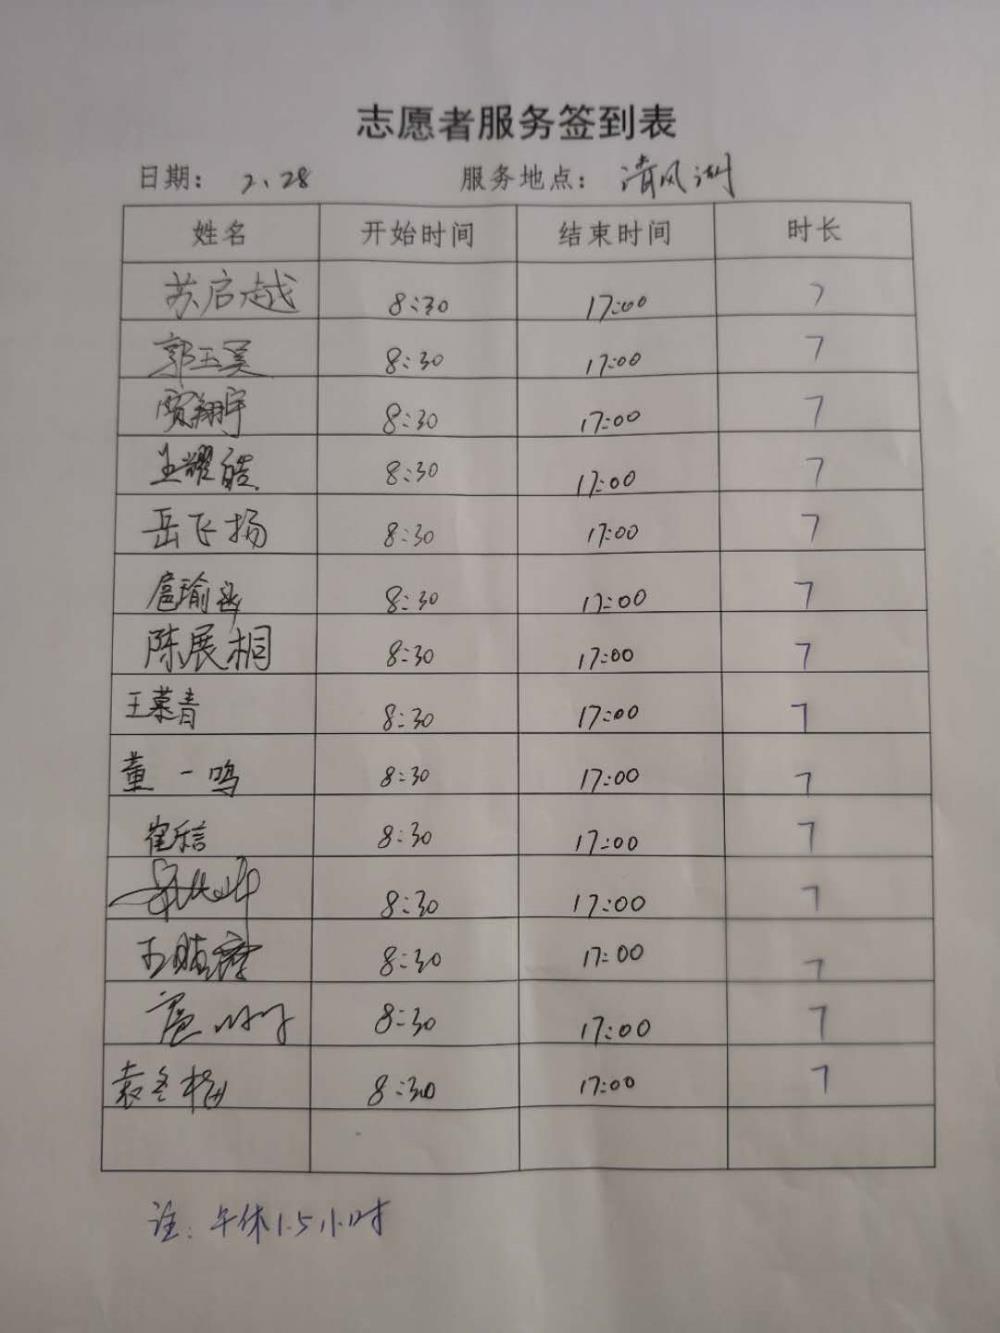 志愿者服务签到表
日期： 2.28 服务地点： 清风湖
姓名 开始时间 结束时间 时长
苏启越 8:30 17:00 7
郭玉昊 8:30 17:00 7
贾翔宇 8:30 17:00 7
王耀皓 8:30 17:00 7
岳飞扬 8:30 17:00 7
扈瑜 8:30 17:00 7
陈展桐 8:30 17:00 7
王慕青 8:30 17:00 7
董一鸣 8:30 17:00 7
崔乐言 8:30 17:00 7
8:30 17:00 7
王 8:30 17:00 7
8:30 17:00 7
袁冬梅 8:30 17:00 7
注：午休1.5小时